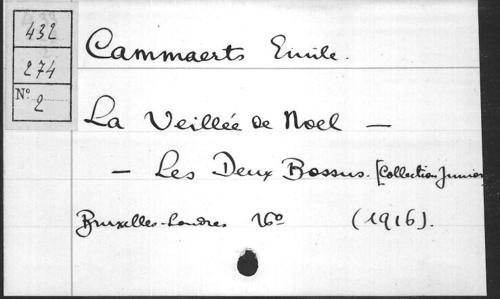 432
274
Nº 2
Cammaerts Emile.
La Veillée de Noel —
— Les Deux Bossus. [Collection Junior
Bruxelles-Londres 16º (1916).